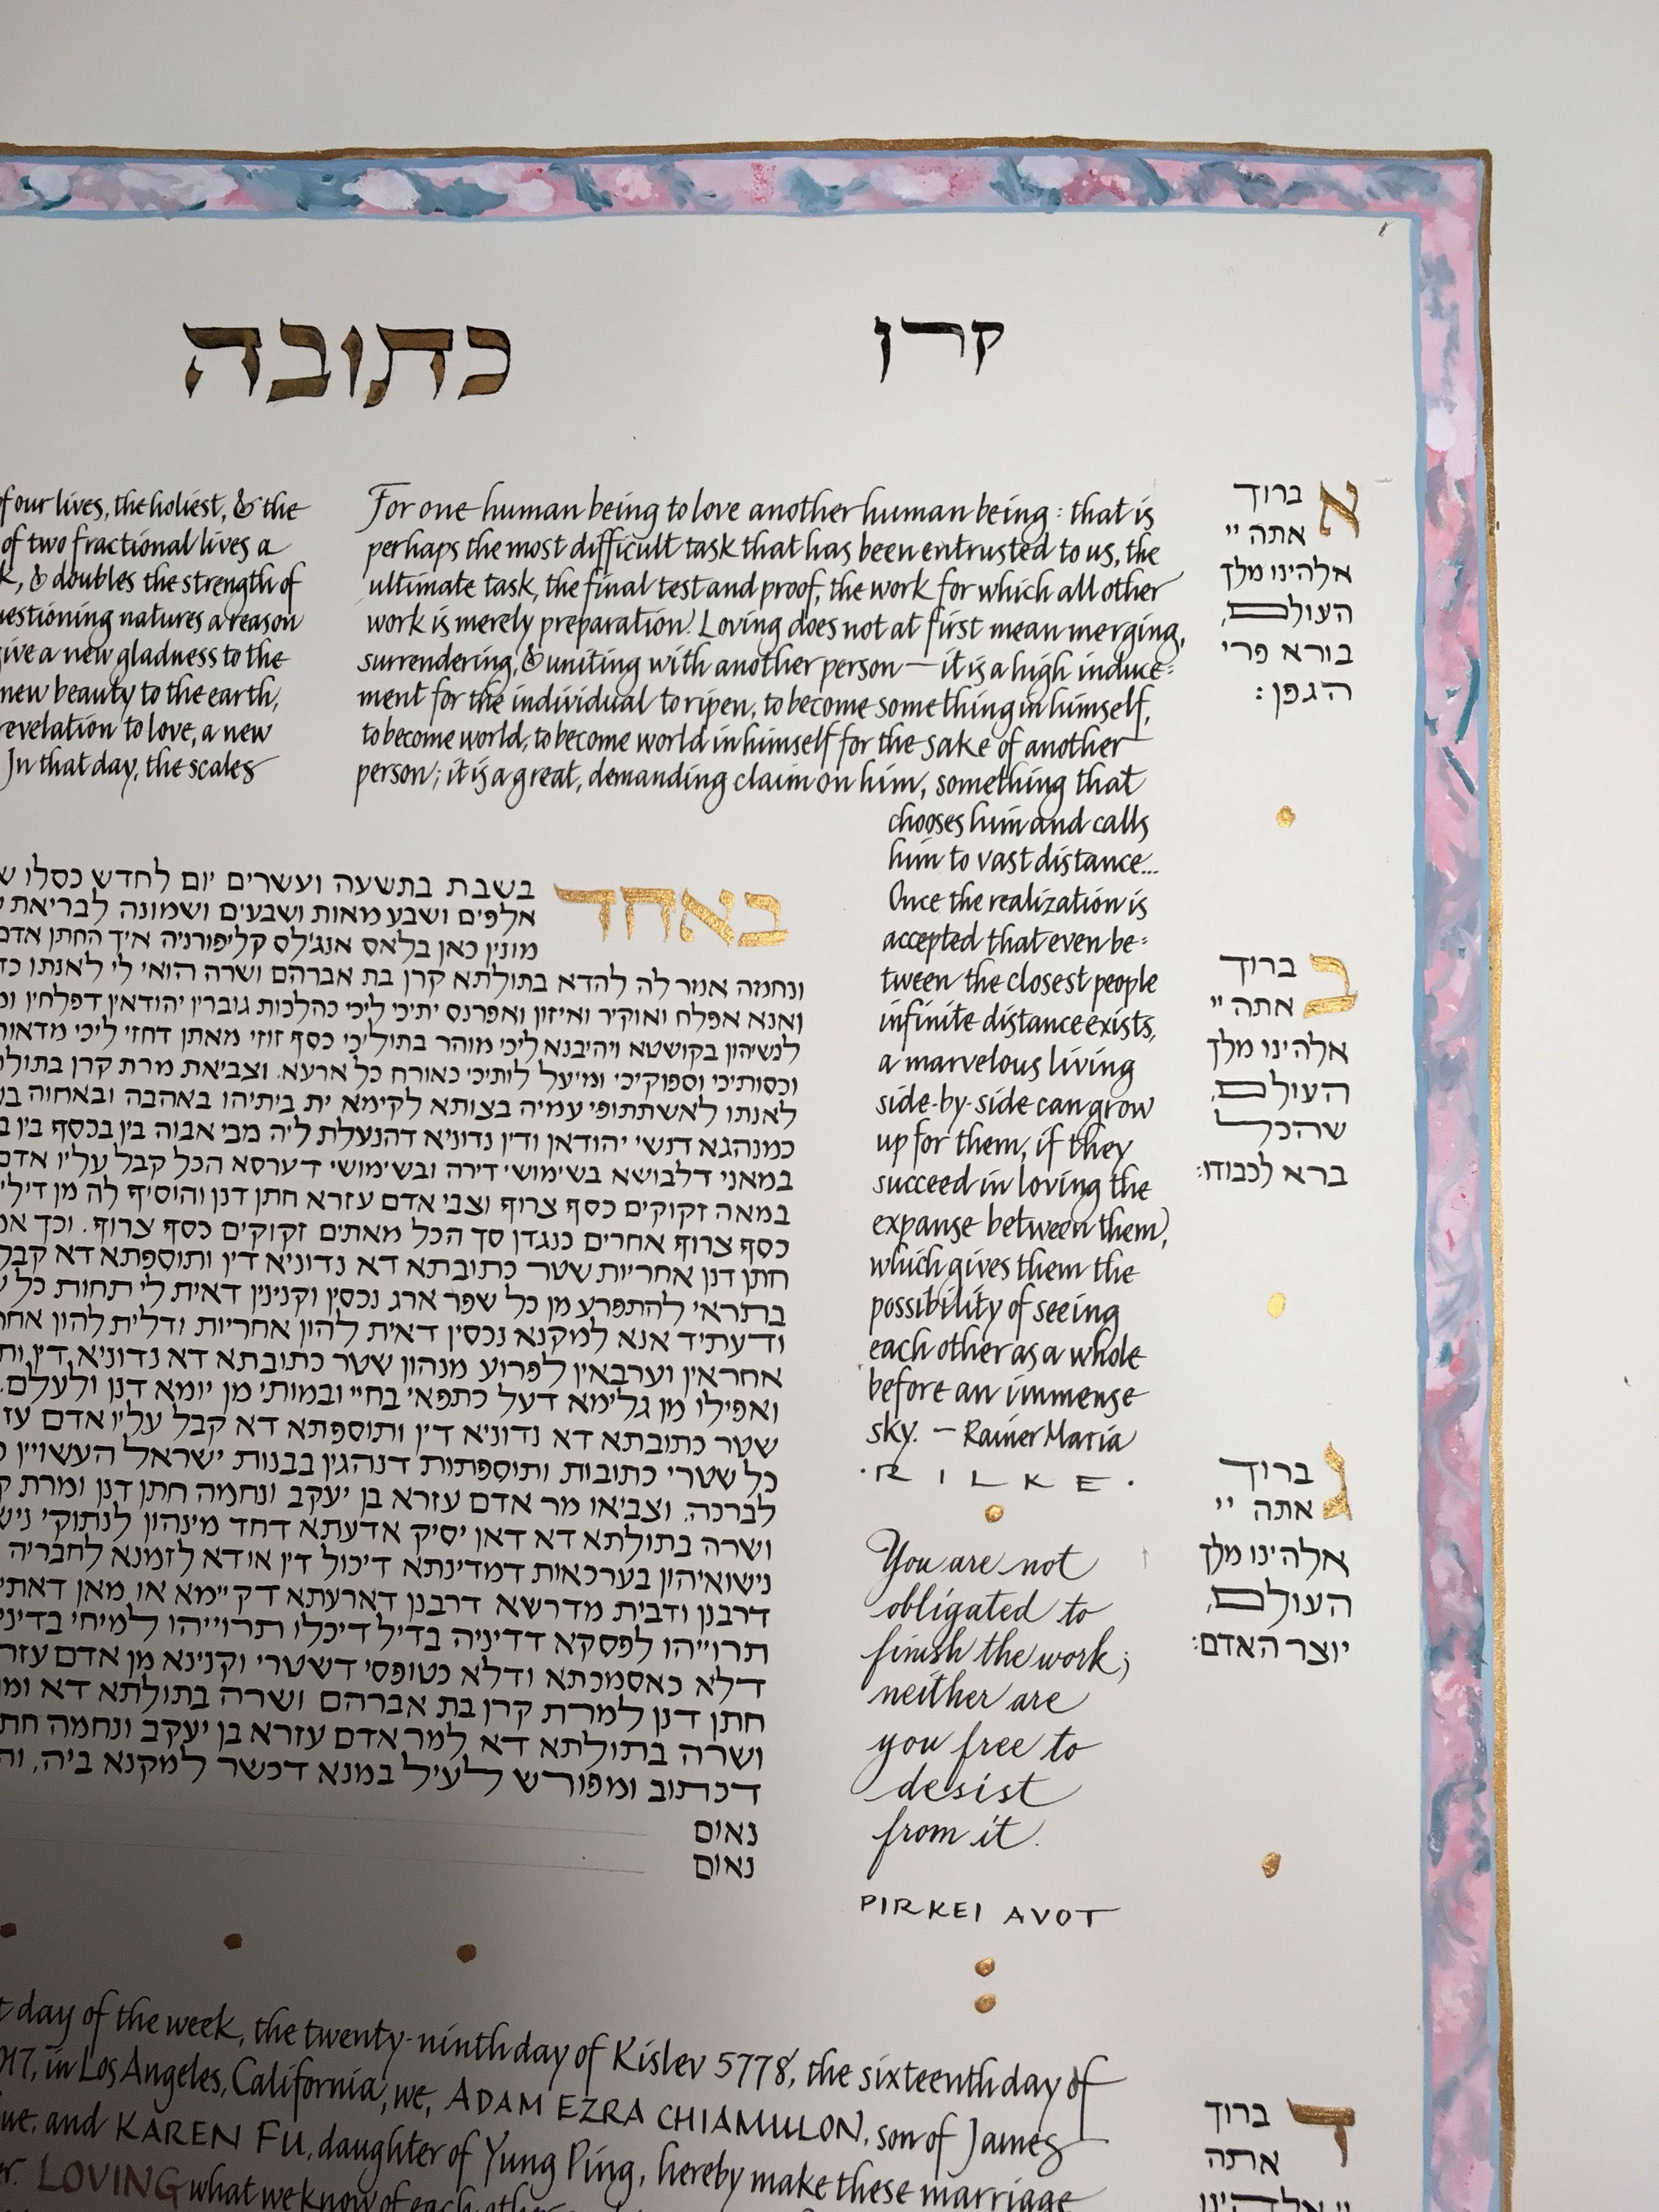 כתובה
קרן
of our lives, the holiest, & the
of two fractional lives a
& doubles the strength of
questioning natures a reason
give a new gladness to the
new beauty to the earth,
revelation to love, a new
In that day, the scales
For one human being to love another human being: that is
perhaps the most difficult task that has been entrusted to us, the
ultimate task, the final test and proof, the work for which all other
work is merely preparation. Loving does not at first mean merging,
surrendering, & uniting with another person — it is a high induce-
ment for the individual to ripen, to become something in himself,
to become world, to become world in himself for the sake of another
person; it is a great, demanding claim on him, something that
chooses him and calls
him to vast distance...
Once the realization is
accepted that even be-
tween the closest people
infinite distance exists,
a marvelous living
side-by-side can grow
up for them, if they
succeed in loving the
expanse between them,
which gives them the
possibility of seeing
each other as a whole
before an immense
sky. — Rainer Maria
· RILKE ·
You are not
obligated to
finish the work;
neither are
you free to
desist
from it.
PIRKEI AVOT
א ברוך
אתה יי
אלהינו מלך
העולם,
בורא פרי
הגפן:
ב ברוך
אתה יי
אלהינו מלך
העולם,
שהכל
ברא לכבודו:
ג ברוך
אתה יי
אלהינו מלך
העולם,
יוצר האדם:
ד ברוך
אתה
יי אלהינו
באחד בשבת בתשעה ועשרים יום לחדש כסלו
אלפים ושבע מאות ושבעים ושמונה לבריאת
מונין כאן בלאס אנג'לס קליפורניה איך החתן אדם
ונחמה אמר לה להדא בתולתא קרן בת אברהם ושרה הואי לי לאנתו
ואנא אפלח ואוקיר ואיזון ואפרנס יתיכי ליכי כהלכות גוברין יהודאין דפלחין
לנשיהון בקושטא ויהיבנא ליכי מוהר בתוליכי כסף זוזי מאתן דחזי ליכי
וכסותיכי וספוקיכי ומיעל לותיכי כאורח כל ארעא. וצביאת מרת קרן
לאנתו לאשתתופי עמיה בצותא לקימא ית ביתיהו באהבה ובאחוה
כמנהגא דנשי יהודאן ודין נדוניא דהנעלת ליה מבי אבוה בין בכסף בין
במאני דלבושא בשימושי דירה ובשימושי דערסא הכל קבל עליו אדם
במאה זקוקים כסף צרוף וצבי אדם עזרא חתן דנן והוסיף לה מן
כסף צרוף אחרים כנגדן סך הכל מאתים זקוקים כסף צרוף. וכך
חתן דנן אחריות שטר כתובתא דא נדוניא דין ותוספתא דא
בתראי להתפרע מן כל שפר ארג נכסין וקנינין דאית לי תחות כל
ודעתיד אנא למקנא נכסין דאית להון אחריות ודלית להון
אחראין וערבאין לפרוע מנהון שטר כתובתא דא נדוניא דין
ואפילו מן גלימא דעל כתפאי בחיי ובמותי מן יומא דנן ולעלם.
שטר כתובתא דא נדוניא דין ותוספתא דא קבל עליו אדם
כל שטרי כתובות ותוספתות דנהגין בבנות ישראל העשויין
לברכה. וצביאו מר אדם עזרא בן יעקב ונחמה חתן דנן ומרת
ושרה בתולתא דא דאן יסיק אדעתא דחד מינהון לנתוקי
נישואיהון בערכאות דמדינתא דיכול דין אודא לזמנא לחבריה
דרבנן ודבית מדרשא דרבנן דארעתא דקיימא או מאן
תרוייהו לפסקא דדיניה בדיל דיכלו תרוייהו למיחי
דלא כאסמכתא ודלא כטופסי דשטרי וקנינא מן אדם
חתן דנן למרת קרן בת אברהם ושרה בתולתא דא
ושרה בתולתא דא למר אדם עזרא בן יעקב ונחמה
דכתוב ומפורש לעיל במנא דכשר למקנא ביה,
נאום
נאום
day of the week, the twenty-ninth day of Kislev 5778, the sixteenth day of
in Los Angeles, California, we, ADAM EZRA CHIAMULON, son of James
and KAREN FU, daughter of Yung Ping, hereby make these marriage
LOVING what we know of each other